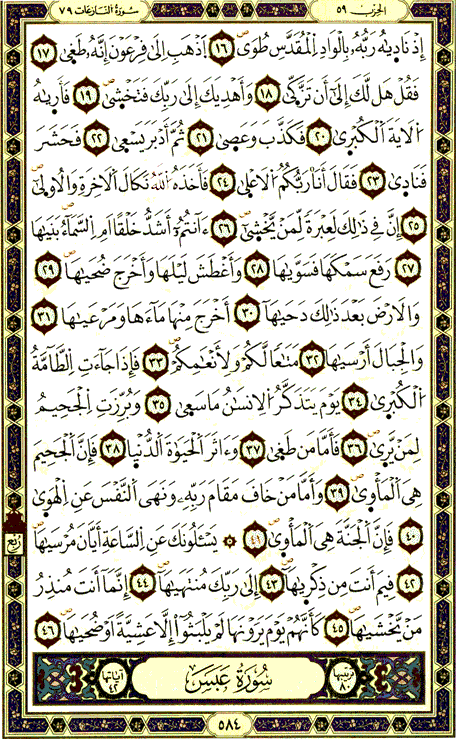 الحزب ٥٩
سُورَةُ النَّازِعَات ٧٩
إِذْ نَادِيٰهُ رَبُّهُۥ بِالْوَادِ الْمُقَدَّسِ طُوَىٰ ١٦ اَ۪ذْهَبِ اِلَىٰ فِرْعَوْنَ إِنَّهُۥ طَغِىٰ ١٧
فَقُلْ هَل لَّكَ إِلَىٰٓ أَن تَزَّكِّىٰ ١٨ وَأَهْدِيَكَ إِلَىٰ رَبِّكَ فَتَخْشِىٰ ١٩ فَأَرِيٰهُ
اُ۬لَايَةَ اَ۬لْكُبْرِىٰ ٢٠ فَكَذَّبَ وَعَصِىٰ ٢١ ثُمَّ أَدْبَرَ يَسْعِىٰ ٢٢ فَحَشَرَ
فَنَادِىٰ ٢٣ فَقَالَ أَنَا رَبُّكُمُ اُ۬لَاعْلِىٰ ٢٤ فَأَخَذَهُ اُ۬للَّهُ نَكَالَ اَ۬لَاخِرَةِ وَالُاولِىٰٓ
٢٥ إِنَّ فِى ذَٰلِكَ لَعِبْرَةً لِّمَنْ يَّخْشِىٰٓ ٢٦ ءَآنتُمُۥٓ أَشَدُّ خَلْقاً اَمِ السَّمَآءُ بَنِيٰهَا
٢٧ رَفَعَ سَمْكَهَا فَسَوِّيٰهَا ٢٨ وَأَغْطَشَ لَيْلَهَا وَأَخْرَجَ ضُحِيٰهَا ٢٩
وَالَارْضَ بَعْدَ ذَٰلِكَ دَحِيٰهَآ ٣٠ أَخْرَجَ مِنْهَا مَآءَهَا وَمَرْعِيٰهَا ٣١
وَالْجِبَالَ أَرْسِيٰهَا ٣٢ مَتَٰعاً لَّكُمْ وَلِأَنْعَٰمِكُمْ ٣٣ فَإِذَا جَآءَتِ اِ۬لطَّآمَّةُ
اُ۬لْكُبْرِىٰ ٣٤ يَوْمَ يَتَذَكَّرُ اُ۬لِانسَٰنُ مَا سَعِىٰ ٣٥ وَبُرِّزَتِ اِ۬لْجَحِيمُ
لِمَنْ يَّرِىٰ ٣٦ فَأَمَّا مَن طَغِىٰ ٣٧ وَءَاثَرَ اَ۬لْحَيَوٰةَ اَ۬لدُّنْيِا ٣٨ فَإِنَّ اَ۬لْجَحِيمَ
هِىَ اَ۬لْمَأْوِىٰ ٣٩ وَأَمَّا مَنْ خَافَ مَقَامَ رَبِّهِۦ وَنَهَى اَ۬لنَّفْسَ عَنِ اِ۬لْهَوِىٰ
٤٠ فَإِنَّ اَ۬لْجَنَّةَ هِىَ اَ۬لْمَأْوِىٰ ٤١ ۞ يَسْـَٔلُونَكَ عَنِ اِ۬لسَّاعَةِ أَيَّانَ مُرْسِيٰهَا
ربع
٤٢ فِيمَ أَنتَ مِن ذِكْرِيٰهَآ ٤٣ إِلَىٰ رَبِّكَ مُنتَهِيٰهَآ ٤٤ إِنَّمَآ أَنتَ مُنذِرُ
مَنْ يَّخْشِيٰهَا ٤٥ كَأَنَّهُمْ يَوْمَ يَرَوْنَهَا لَمْ يَلْبَثُوٓاْ إِلَّا عَشِيَّةً اَوْ ضُحِيٰهَا ٤٦
ترتيبها ٨٠
سُورَةُ عَبَسَ
آياتها ٤٢
٥٨٤